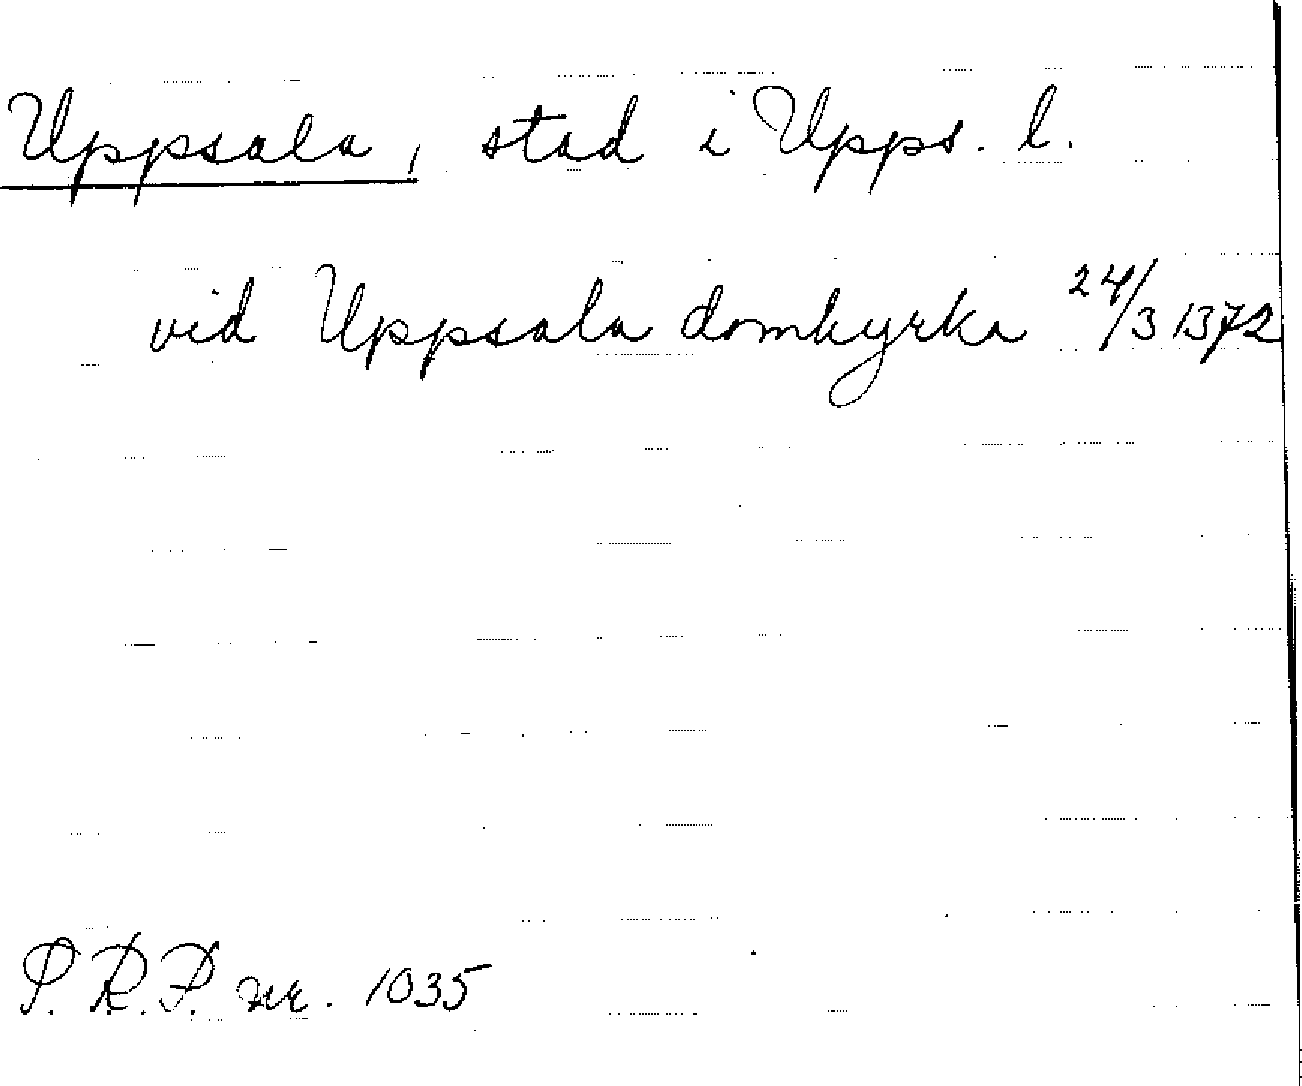 Uppsala, stad i Upps. l.
vid Uppsala domkyrka 24/3 1372
P.R.P. nr. 1035